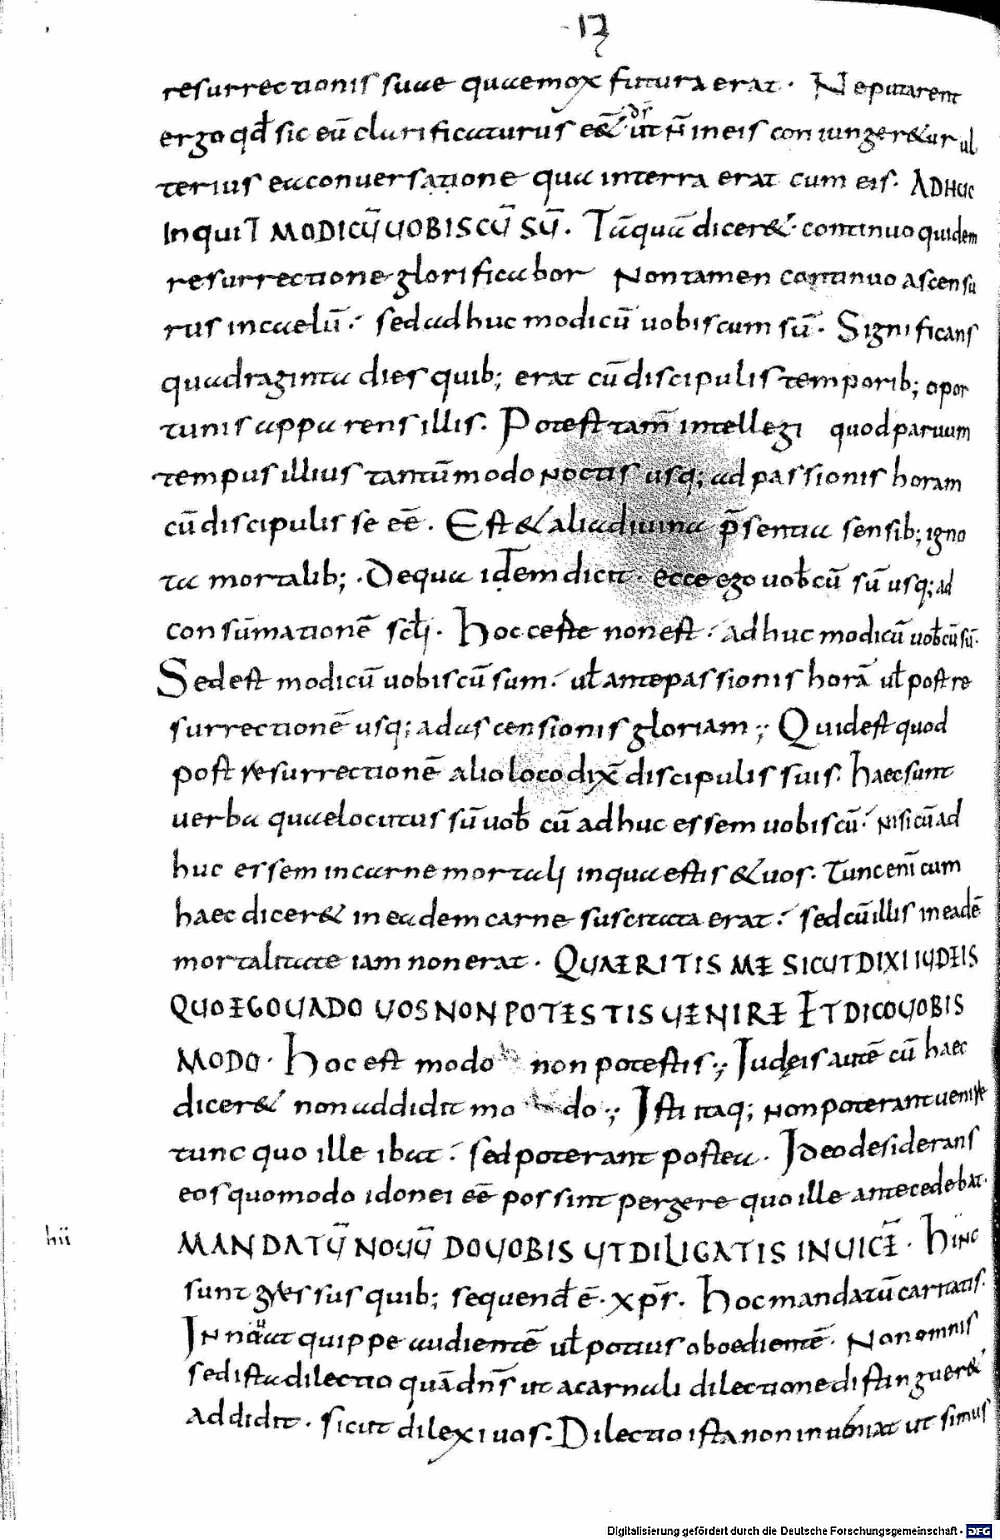 17
resurrectionis suae quaemox futura erat · Neputarent
ergo qđ sic eū clarificaturus eē& dſ ut n̄ ineis coniunger&ur ul
terius eaconuersatione qua interra erat cum eis · ADHUC
INQUIT MODICŪ UOBISCŪ SŪ . Tāquā dicer& · continuo quidem
resurrectione glorificabor Nontamen continuo ascensu
rus incaelū · sedadhuc modicū uobiscum sū · Significans
quadraginta dies quib; erat cū discipulis temporib; opor
tunis apparens illis · Potest tam̄ intellegi quodparuum
tempus illius tantūmodo noctis usq; ad passionis horam
cū discipulis se eē · Est & alia diuina p̄sentia sensib; igno
ta mortalib; · Dequa idem dicit · ecce ego uob cū sū usq; ad
consūmationē scli · Hoc certe non est · adhuc modicū uobcū sū ·
Sedest modicū uobiscū sum · ul antepassionis horā ul postre
surrectionē usq; adascensionis gloriam ·; Quidest quod
post resurrectionē alioloco dix̄ discipulis suis · haecsunt
uerba quaelocutus sū uob cū adhuc essem uobiscū · nisicūad
huc essem incarne mortali inqua estis & uos · Tunceni cum
haec dicer& ineadem carne suscitata erat · sedcūillis ineadē
mortalitate iam nonerat · QUAERITIS ME SICUT DIXI IUDEIS
QUO EGO UADO UOS NON POTESTIS UENIRE ET DICO UOBIS
MODO · Hoc est modo non potestis ·; Iudęis autē cū haec
dicer& nonaddidit mo do ·; Isti itaq; nonpoterantuenire
tunc quo ille ibat · sedpoterant postea · Ideodesiderans
eosquomodo idonei eē possint pergere quo ille antecedebat ·
hii MANDATŪ NOUŪ DO UOBIS UT DILIGATIS INUICĒ · Hinc
sunt gressus quib; sequend ē · xp̄s · Hocmandatū caritatis ·
Innouat quippe audientē ul potius oboedientē · Nonomnis
sedista dilectio quā dn̄s ut acarnali dilectione distinguer&
addidit · sicut dilexi uos · Dilectio ista non inueniat ut simus
Digitalisierung gefördert durch die Deutsche Forschungsgemeinschaft - DFG